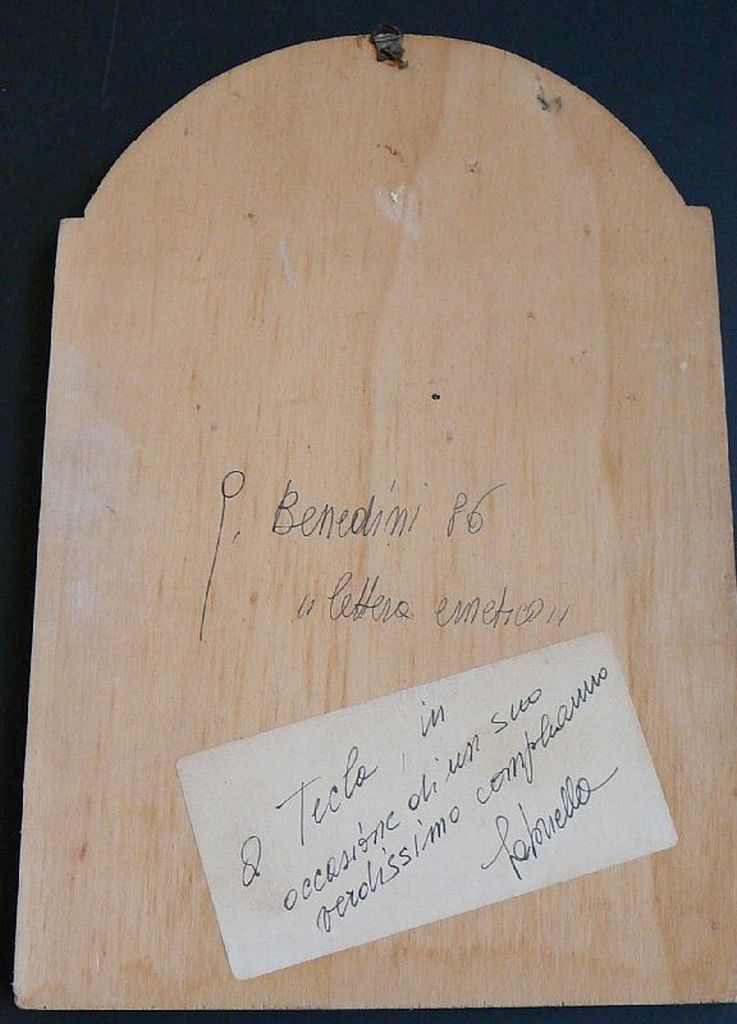 G. Benedini 86
"lettera emetica"
A Tecla, in
occasione di un suo
verdissimo compleanno
Gabriella